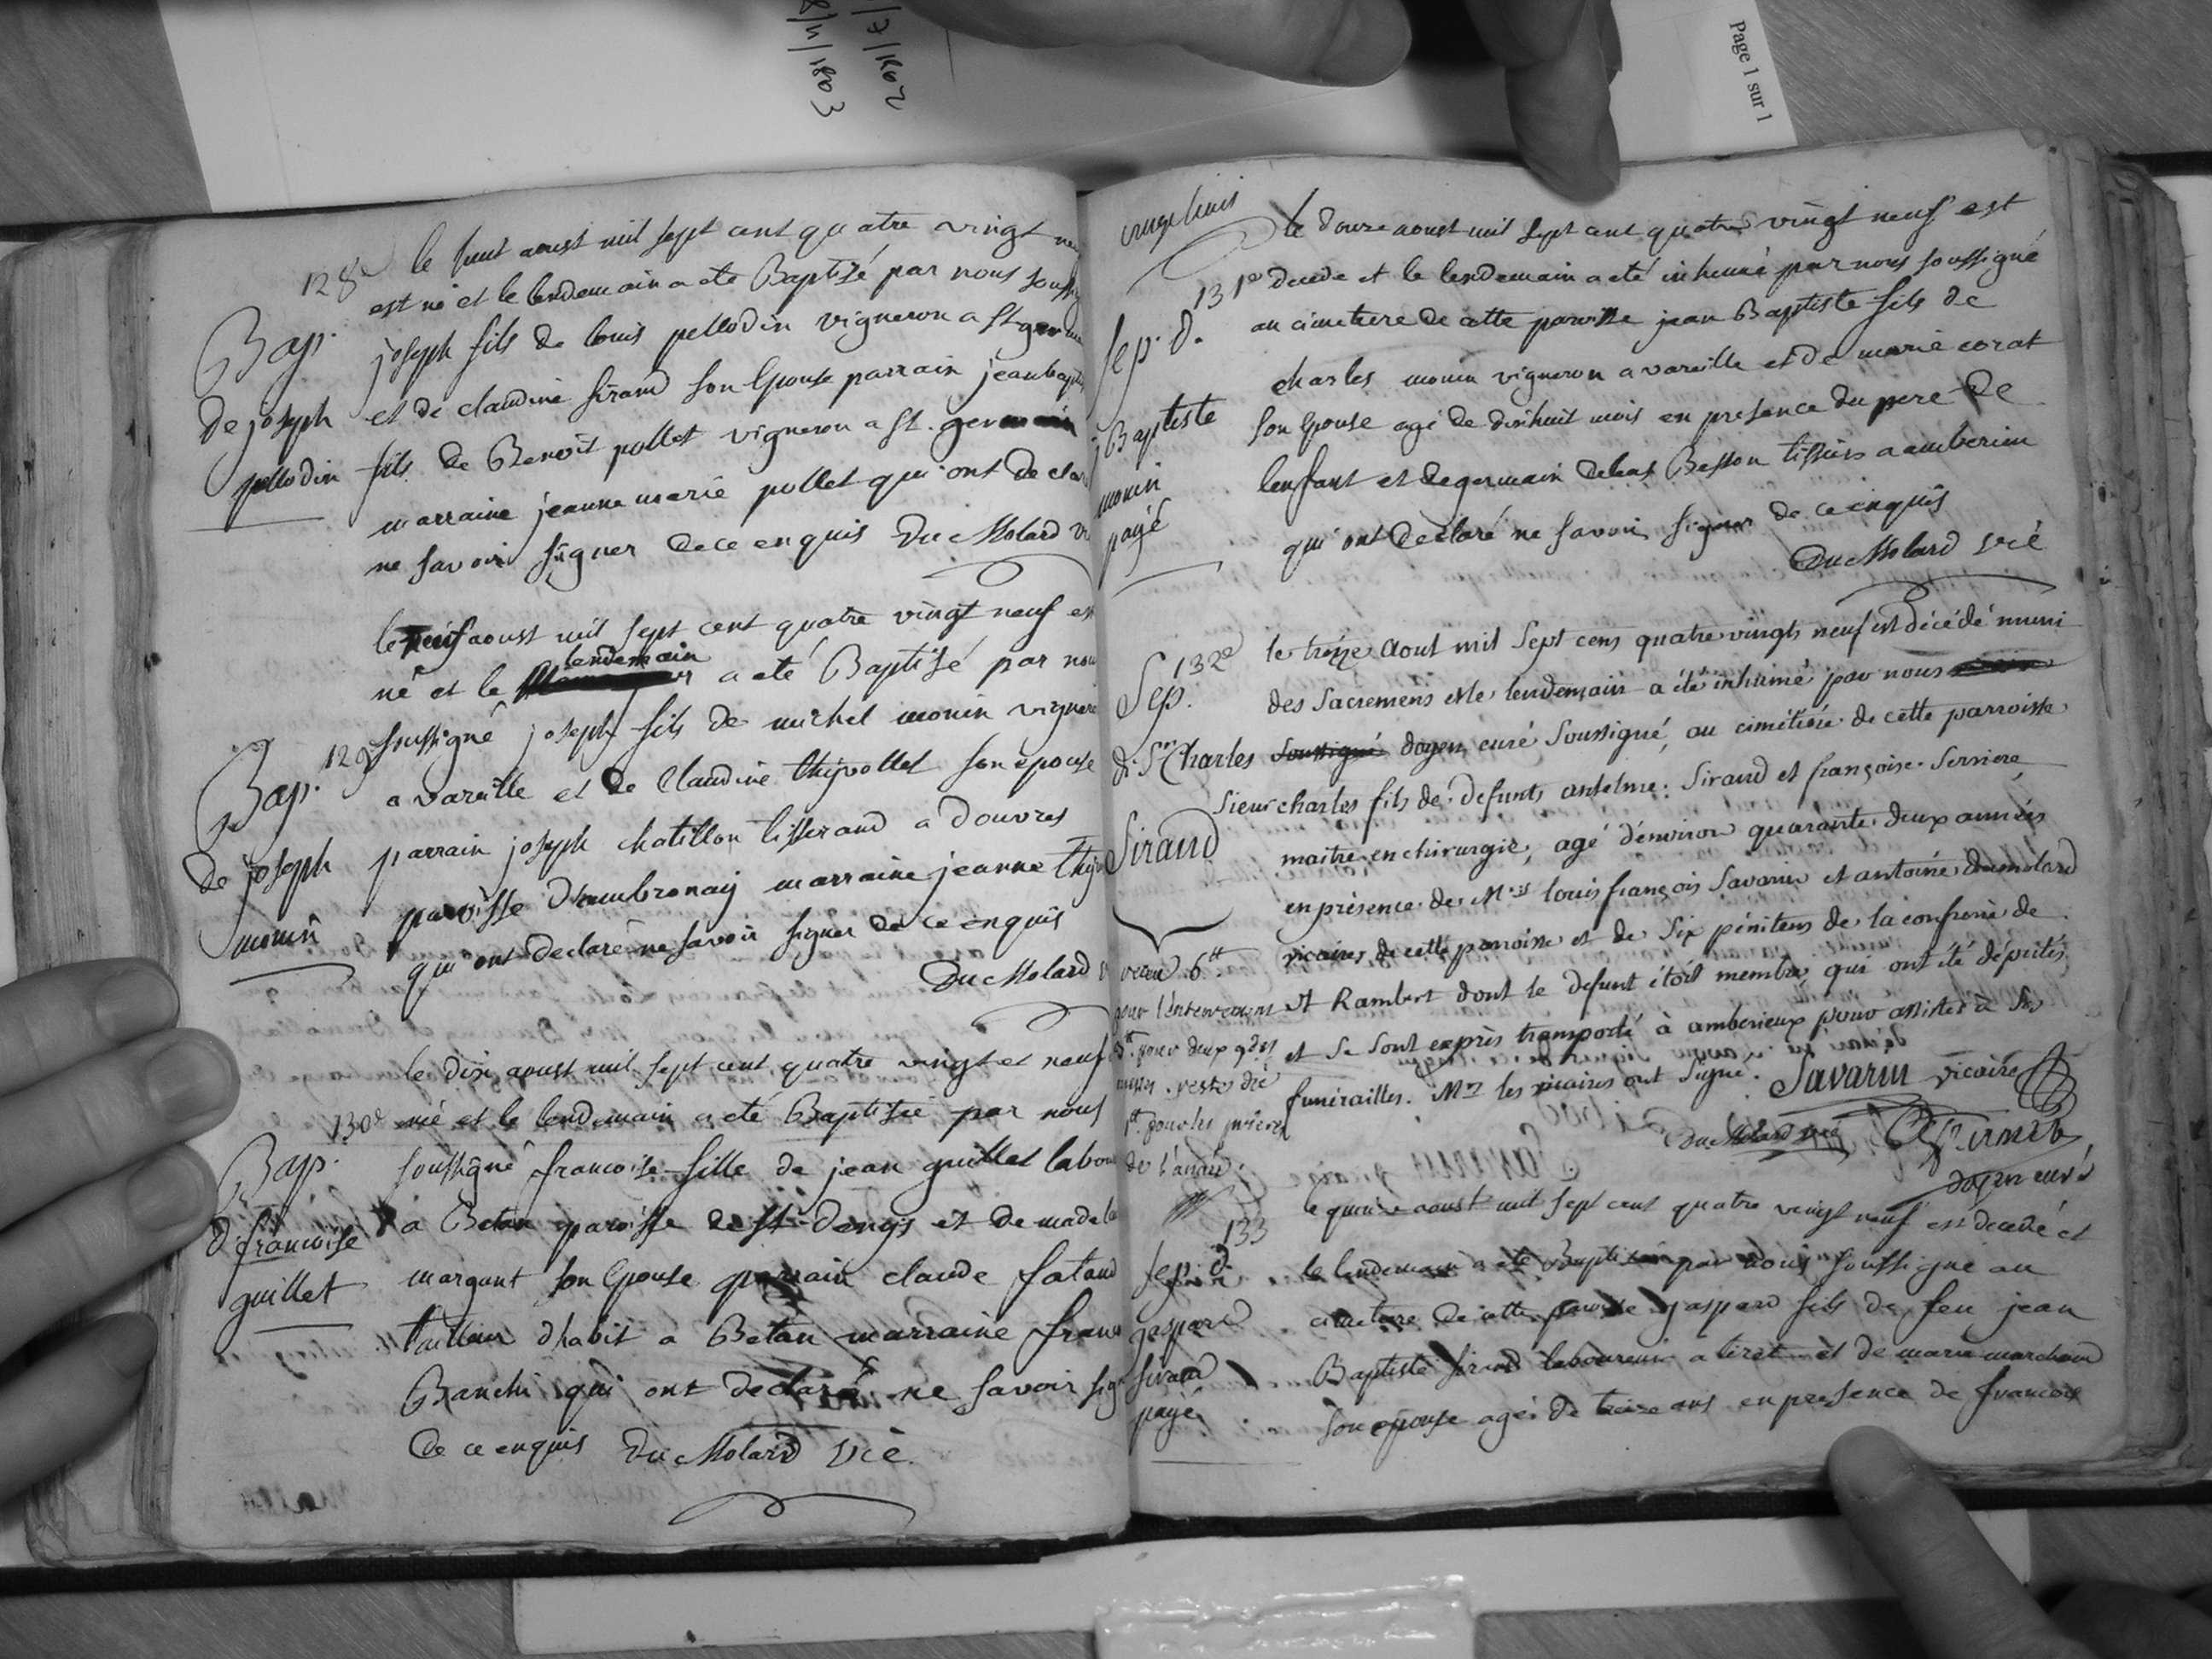 Page 1 sur 1
128e
le huit aoust mil sept cent quatre vingt
est né et le lendemain a été Baptisé par nous
Bap.
joseph fils de louis pellodin vigneron a St
De joseph
et de claudine sirand son Epouse parrain
pellodin
fils de Benoit pollet vigneron a St. germain
marraine jeanne marie pollet qui ont
ne savoir signer de ce enquis DuMolard
le neuf aoust mil sept cent quatre vingt neuf
né et le lendemain a été Baptisé par
129
soussigné joseph fils de michel monin
Bap.
a vareille et de claudine thijvollet son epouse
De joseph
parrain joseph chatillon tisserand a Douvres
monin
paroisse Dambronay marraine jeanne
qui ont declaré ne savoir signer de ce enquis
DuMolard
le dix aoust mil sept cent quatre vingt et neuf
130e
née et le lendemain a été Baptisée par nous
Bap.
soussigné francoise fille de jean guillet
D francoise
a Betan paroisse de St Denys et de
guillet
margant son Epouse parrain claude
tailleur dhabit a Betan marraine
Banchi qui ont declaré ne savoir
de ce enquis DuMolard vicé
le douze aoust mil sept cent quatre vingt neuf est
131e
decede et le lendemain a été inhumé par nous soussigné
Sep. d.
au cimetiere de cette paroisse jean Baptiste fils de
charles monin vigneron a vareille et de marie corat
Baptiste
son Epouse agé de dixhuit mois en presence du pere de
monin
lenfant et de germain Besson a
payé
qui ont declaré ne savoir signer de ce enquis
DuMolard vicé
132e
le treize aout mil sept cens quatre vingts neuf est décédé muni
Sep.
des sacremens et le lendemain a été inhumé par nous
de Sr Charles
soussigné doyen curé soussigné, au cimétiére de cette parroisse
sieur charles fils de defunts antelme Siraud et françoise
Siraud
maitre en chirurgie, agé d'environ quarante deux années
en présence de Mrs louis françois Savarin et antoine dumolard
vicaires de cette parroisse et de six pénitens de la confrerie de
St Rambert dont le defunt étoit membre, qui ont été députés
et se sont exprès transporté à amberieux pour assister à ses
funérailles. Mrs les vicaires ont signé. Savarin vicaire
DuMolard vicé
doyen curé
6tt
pour l'enterrement
pour deux
messes . reste
pour les prieres
de l'année
133
le quinze aoust mil sept cent quatre vingt neuf est decedé et
Sep. d.
le lendemain a été par nous soussigné au
gaspard
cimetiere de cette paroisse gaspard fils de feu jean
sirand
Baptiste sirand laboureur a tiret et de marie marchand
payé
son epouse agé de ans en presence de francois